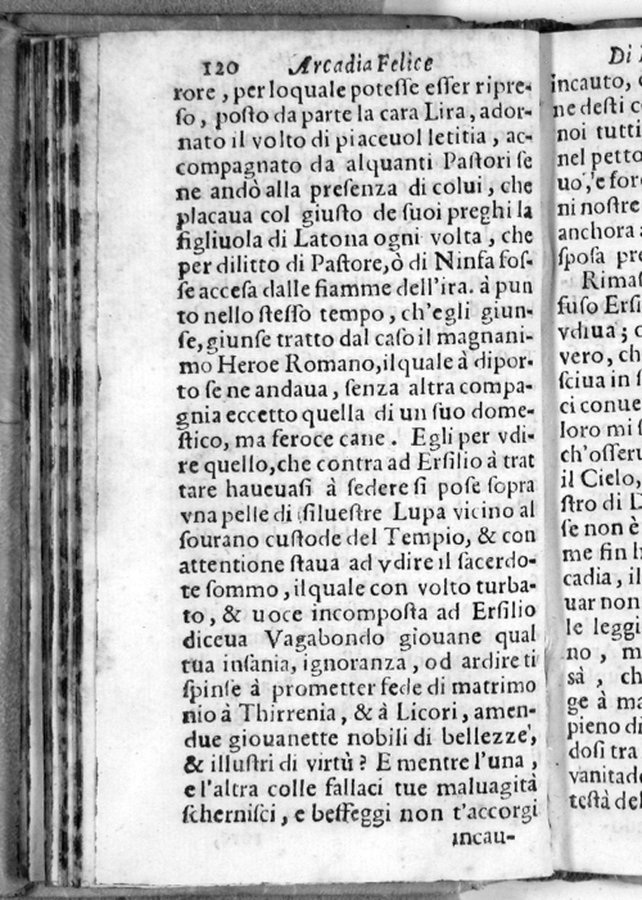 120 Arcadia Felice
rore, per loquale potesse esser ripre-
so, posto da parte la cara Lira, ador-
nato il volto di piaceuol letitia, ac-
compagnato da alquanti Pastori se
ne andò alla presenza di colui, che
placaua col giusto de suoi preghi la
figliuola di Latona ogni volta, che
per dilitto di Pastore, ò di Ninfa fos-
se accesa dalle fiamme dell'ira. à pun
to nello stesso tempo, ch'egli giun-
se, giunse tratto dal caso il magnani-
mo Heroe Romano, ilquale à dipor-
to se ne andaua, senza altra compa-
gnia eccetto quella di un suo dome-
stico, ma feroce cane. Egli per vdi-
re quello, che contra ad Ersilio à trat
tare haueuasi à sedere si pose sopra
vna pelle di siluestre Lupa vicino al
sourano custode del Tempio, & con
attentione staua ad vdire il sacerdo-
te sommo, ilquale con volto turba-
to, & uoce incomposta ad Ersilio
diceua Vagabondo giouane qual
tua insania, ignoranza, od ardire ti
spinse à prometter fede di matrimo
nio à Thirrenia, & à Licori, amen-
due giouanette nobili di bellezze,
& illustri di virtù? E mentre l'una,
e l'altra colle fallaci tue maluagità
schernisci, e beffeggi non t'accorgi
incau-
Di
incauto,
ne desti c
noi tutti
nel petto
uo, e for
ni nostre
anchora
sposa pre
Rimas
fuso Ersi
vdiua; c
vero, ch
sciua in s
ci conue
loro mi s
ch'osseru
il Cielo,
stro di D
se non è
me fin h
cadia, il
uar non
le leggi
no, m
sà, ch
ge à ma
pieno di
dosi tra
vanitade
testà del